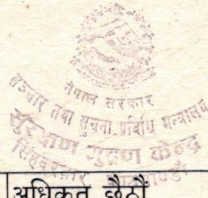 नेपाल सरकार
सञ्चार तथा सूचना प्रविधि मन्त्रालय
सुरक्षण मुद्रण केन्द्र
सिंहदरबार
अधिकृत छैठौं